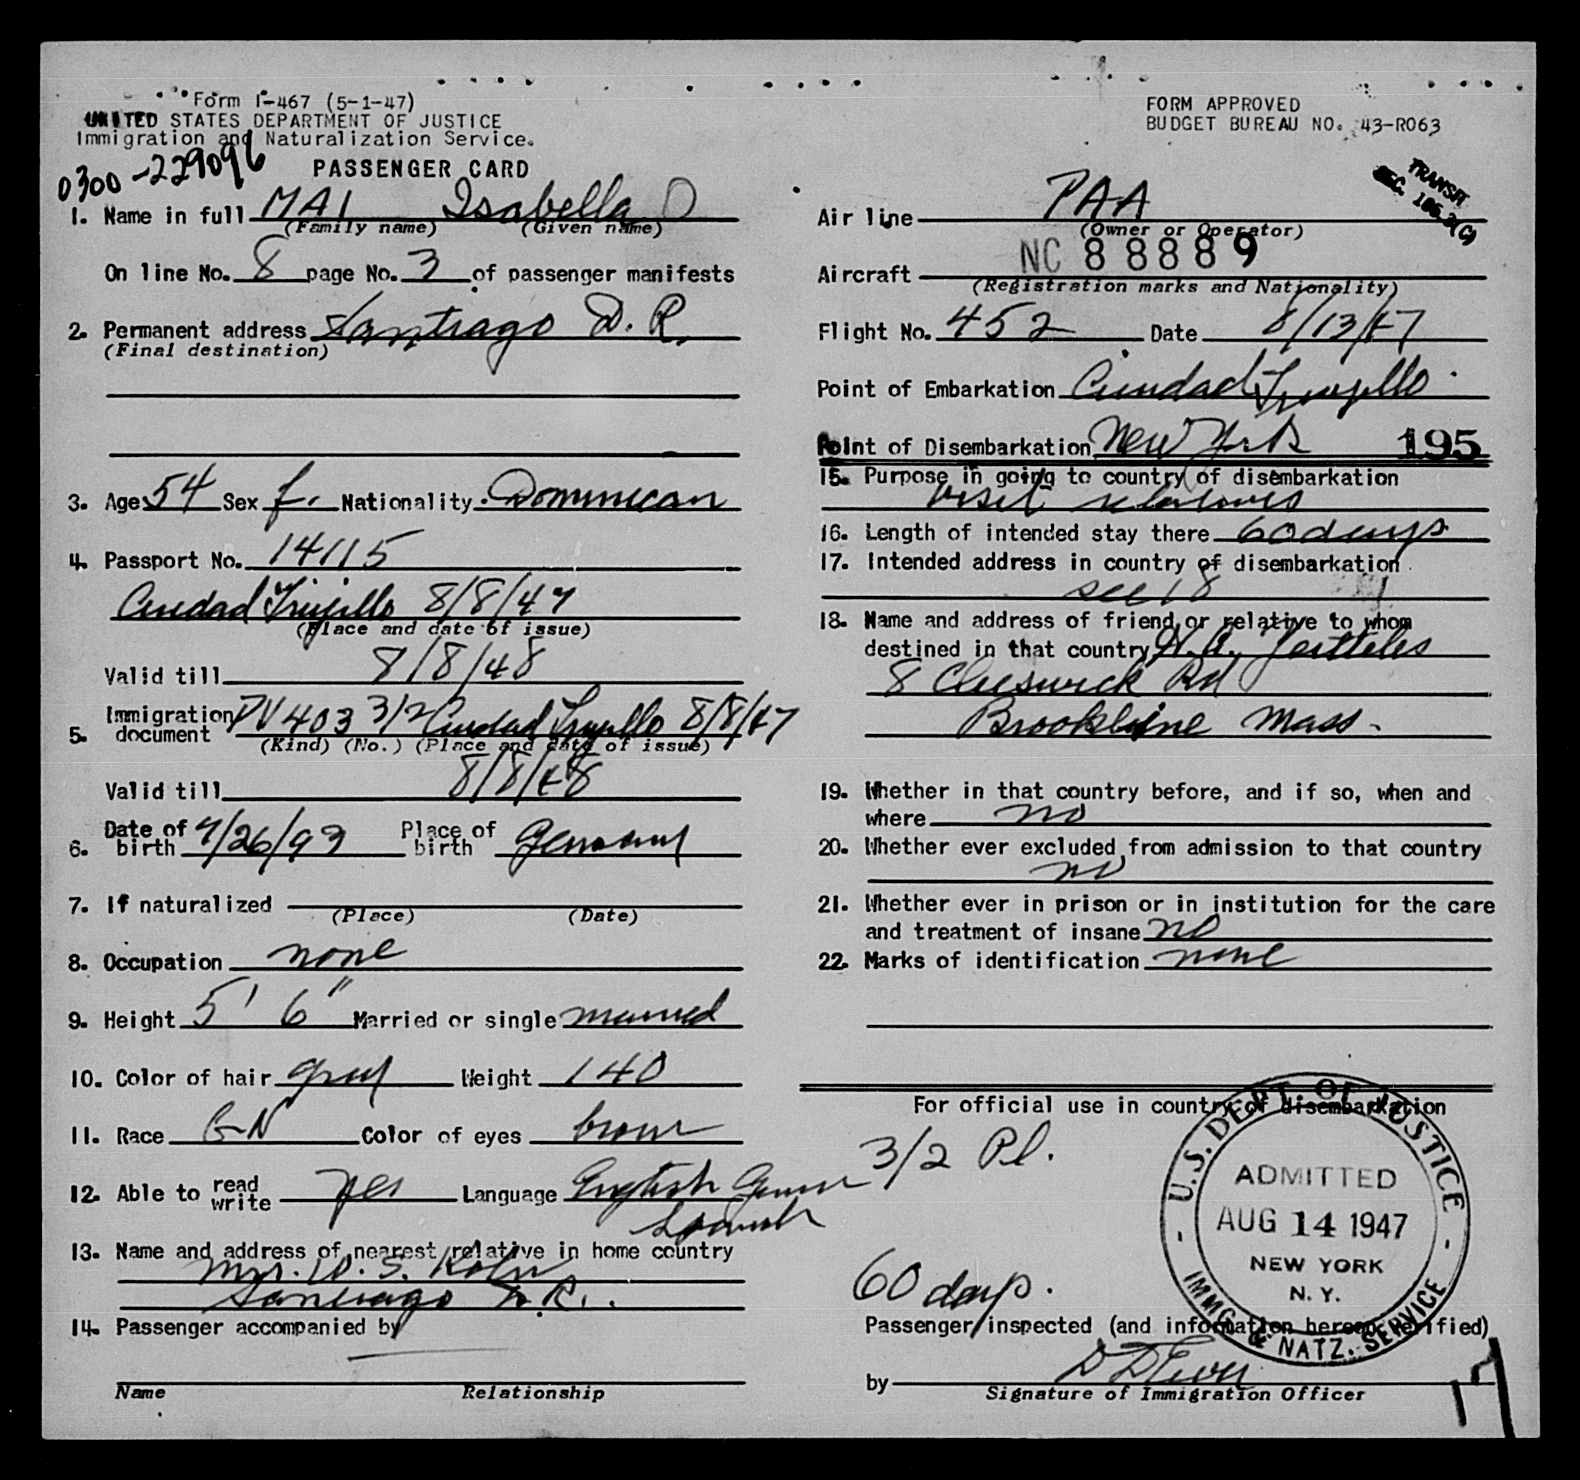 Form I-467 (5-1-47)
UNITED STATES DEPARTMENT OF JUSTICE
Immigration and Naturalization Service.
0300-229096
PASSENGER CARD
1. Name in full MAI Isabella O
(Family name) (Given name)
On line No. 8 page No. 3 of passenger manifests
2. Permanent address Santiago D.R.
(Final destination)
3. Age 54 Sex f. Nationality Dominican
4. Passport No. 14115
Ciudad Trujillo 8/8/47
(Place and date of issue)
Valid till 8/8/48
5. Immigration document PV 403 3/2 Ciudad Trujillo 8/8/47
(Kind) (No.) (Place and date of issue)
Valid till 8/8/48
6. Date of birth 7/26/93 Place of birth Germany
7. If naturalized
(Place) (Date)
8. Occupation none
9. Height 5' 6" Married or single married
10. Color of hair grey Weight 140
11. Race G-N Color of eyes brown
12. Able to read write yes Language English German
Spanish
13. Name and address of nearest relative in home country
Mrs. W. S. Kohn
Santiago D.R.
14. Passenger accompanied by
Name Relationship
FORM APPROVED
BUDGET BUREAU NO. 43-R063
TRANSIT
SEC.
Air line PAA
(Owner or Operator)
Aircraft NC 88889
(Registration marks and Nationality)
Flight No. 452 Date 8/13/47
Point of Embarkation Ciudad Trujillo
Point of Disembarkation New York 195
15. Purpose in going to country of disembarkation
visit relatives
16. Length of intended stay there 60 days
17. Intended address in country of disembarkation
see 18
18. Name and address of friend or relative to whom
destined in that country Jeitteles
8 Cheswick Rd
Brookline Mass.
19. Whether in that country before, and if so, when and
where no
20. Whether ever excluded from admission to that country
no
21. Whether ever in prison or in institution for the care
and treatment of insane no
22. Marks of identification none
For official use in country of disembarkation
3/2 Pl.
60 days.
U.S. DEPT. OF JUSTICE
ADMITTED
AUG 14 1947
NEW YORK
N.Y.
IMMG. & NATZ. SERVICE
Passenger inspected (and information hereon verified)
by
Signature of Immigration Officer